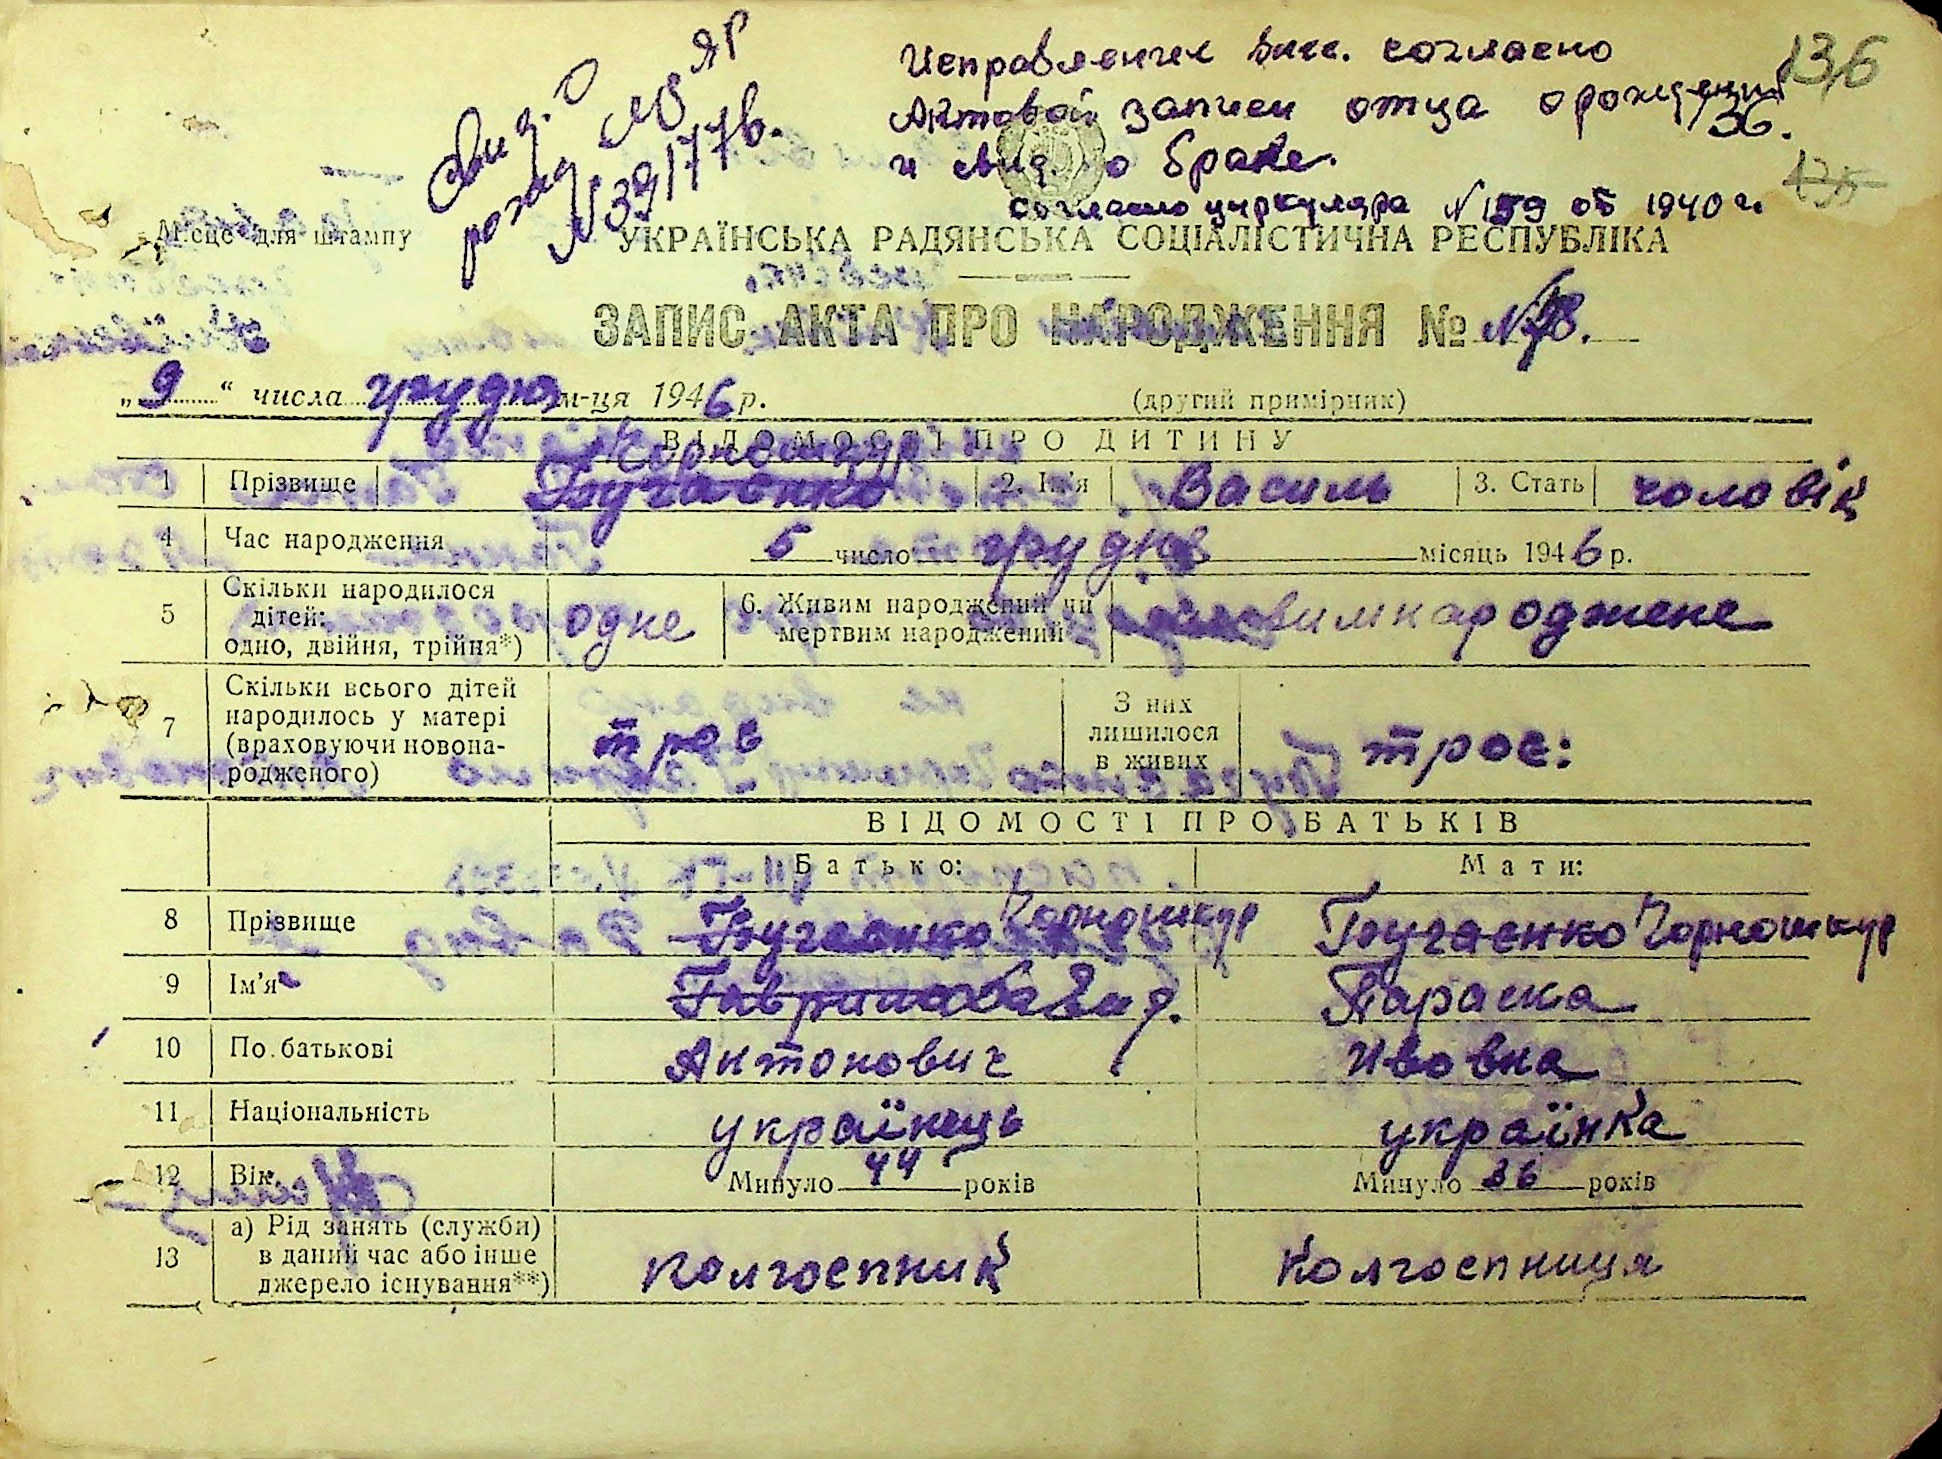 136
Исправления внес. согласно
Актовой записи отца о рождении
/36.
и свид. о браке.
135
согласно циркуляра №159 от 1940 г.
Свид. о
рожд ЯР
№39177в.
Місце для штампу
УКРАЇНСЬКА РАДЯНСЬКА СОЦІАЛІСТИЧНА РЕСПУБЛІКА
ЗАПИС АКТА ПРО НАРОДЖЕННЯ №
„9“ числа грудня м-ця 1946 р. (другий примірник)
ВІДОМОСТІ ПРО ДИТИНУ
Чорношкур
1 Прізвище Бугаєнко 2. Ім'я Василь 3. Стать чоловік
4 Час народження 5 число грудня місяць 1946 р.
5 Скільки народилося дітей: одно, двійня, трійня*) одне 6. Живим народжений чи мертвим народжений живимнароджене
7 Скільки всього дітей народилось у матері (враховуючи новонародженого) троє З них лишилося в живих троє:
ВІДОМОСТІ ПРО БАТЬКІВ
Батько: Мати:
8 Прізвище Бугаєнко Чорношкур Бугаєнко Чорношкур
9 Ім'я Параска
10 По батькові Антонович Ивовна
11 Національність українець українка
12 Вік Минуло 44 років Минуло 36 років
13 а) Рід занять (служби) в даний час або інше джерело існування**) колгоспник колгоспниця